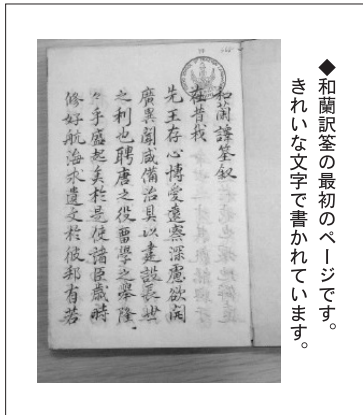 ◆和蘭訳筌の最初のページです。
きれいな文字で書かれています。
和蘭譯筌叙
在昔我
先王存心博愛遠察深慮欲開
廣異聞咸備治具以建設長世
之利也聘唐之役留學之舉隆
乎盛起矣於是使諸臣歳時
修好航海求遺文於彼邦有若